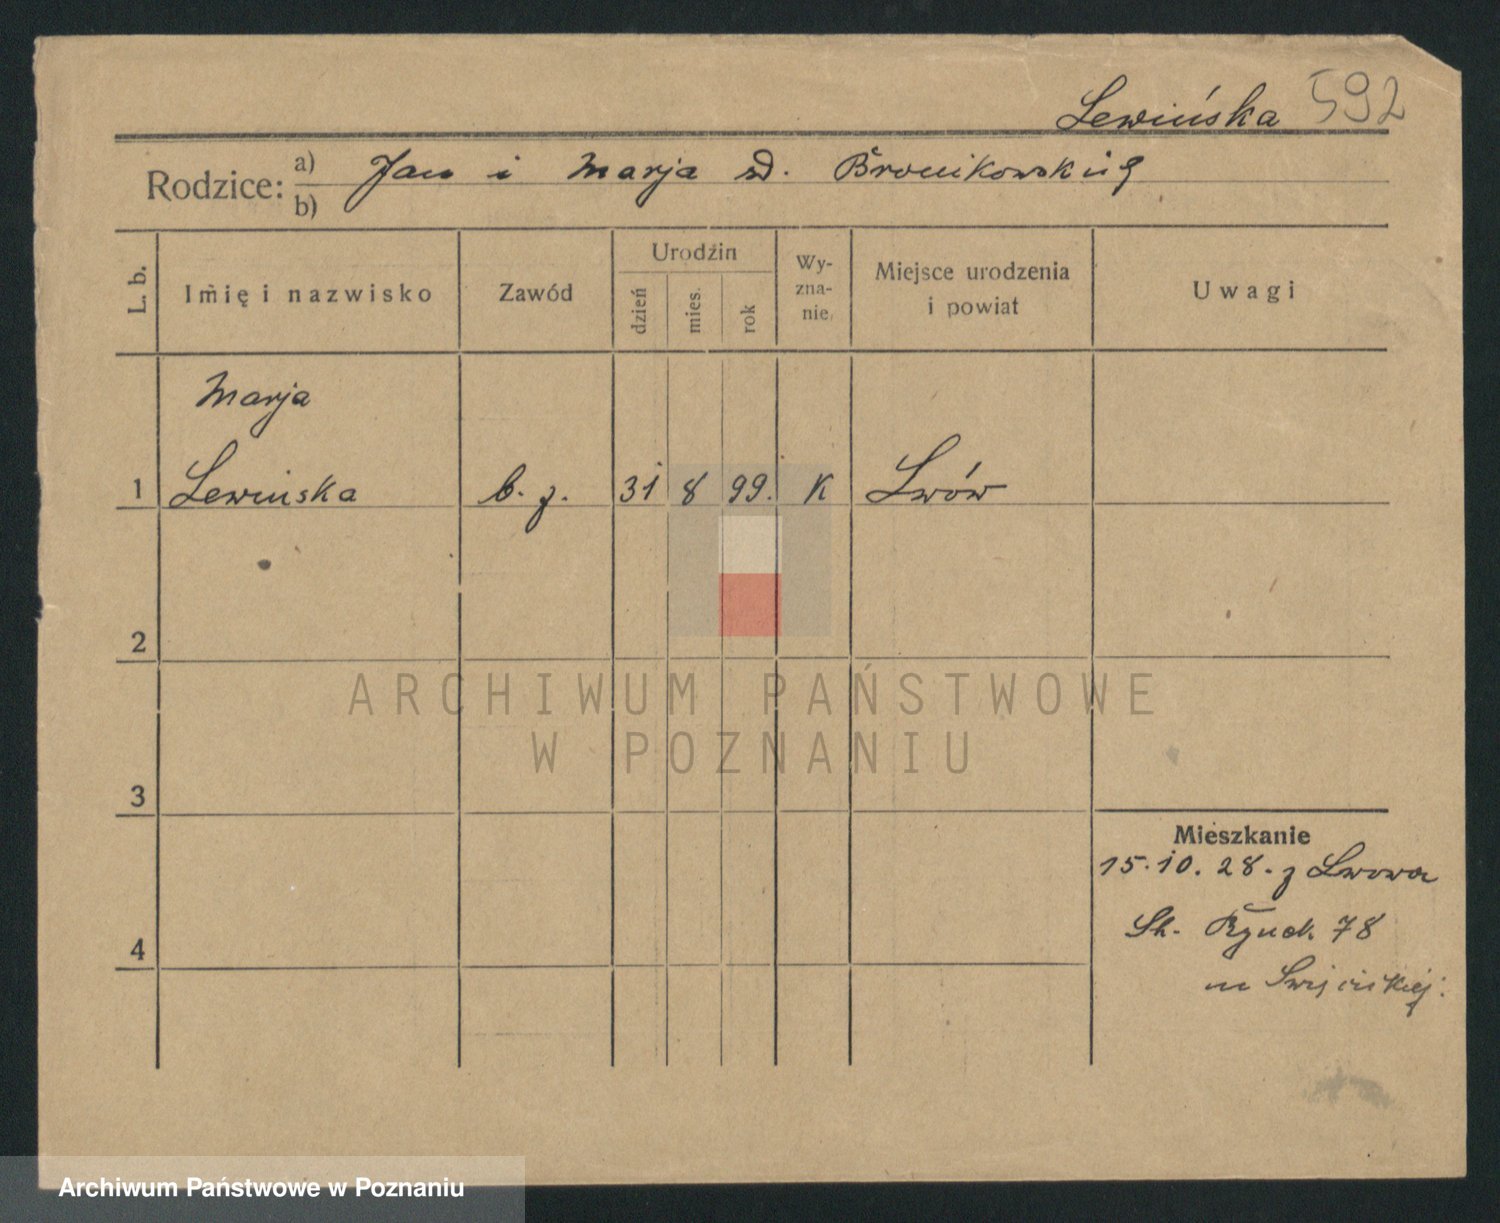 Lewińska 592
Rodzice: a) Jan i Marja zd. Bronikowskich
b)
L. b.
Imię i nazwisko
Zawód
Urodzin
dzień
mies.
rok
Wy-
zna-
nie
Miejsce urodzenia
i powiat
Uwagi
Marja
1 Lewińska b. z. 31 8 99. K Lwów
2
ARCHIWUM PAŃSTWOWE
W POZNANIU
3
Mieszkanie
15.10.28. z Lwowa
Rynek 78
4
Archiwum Państwowe w Poznaniu